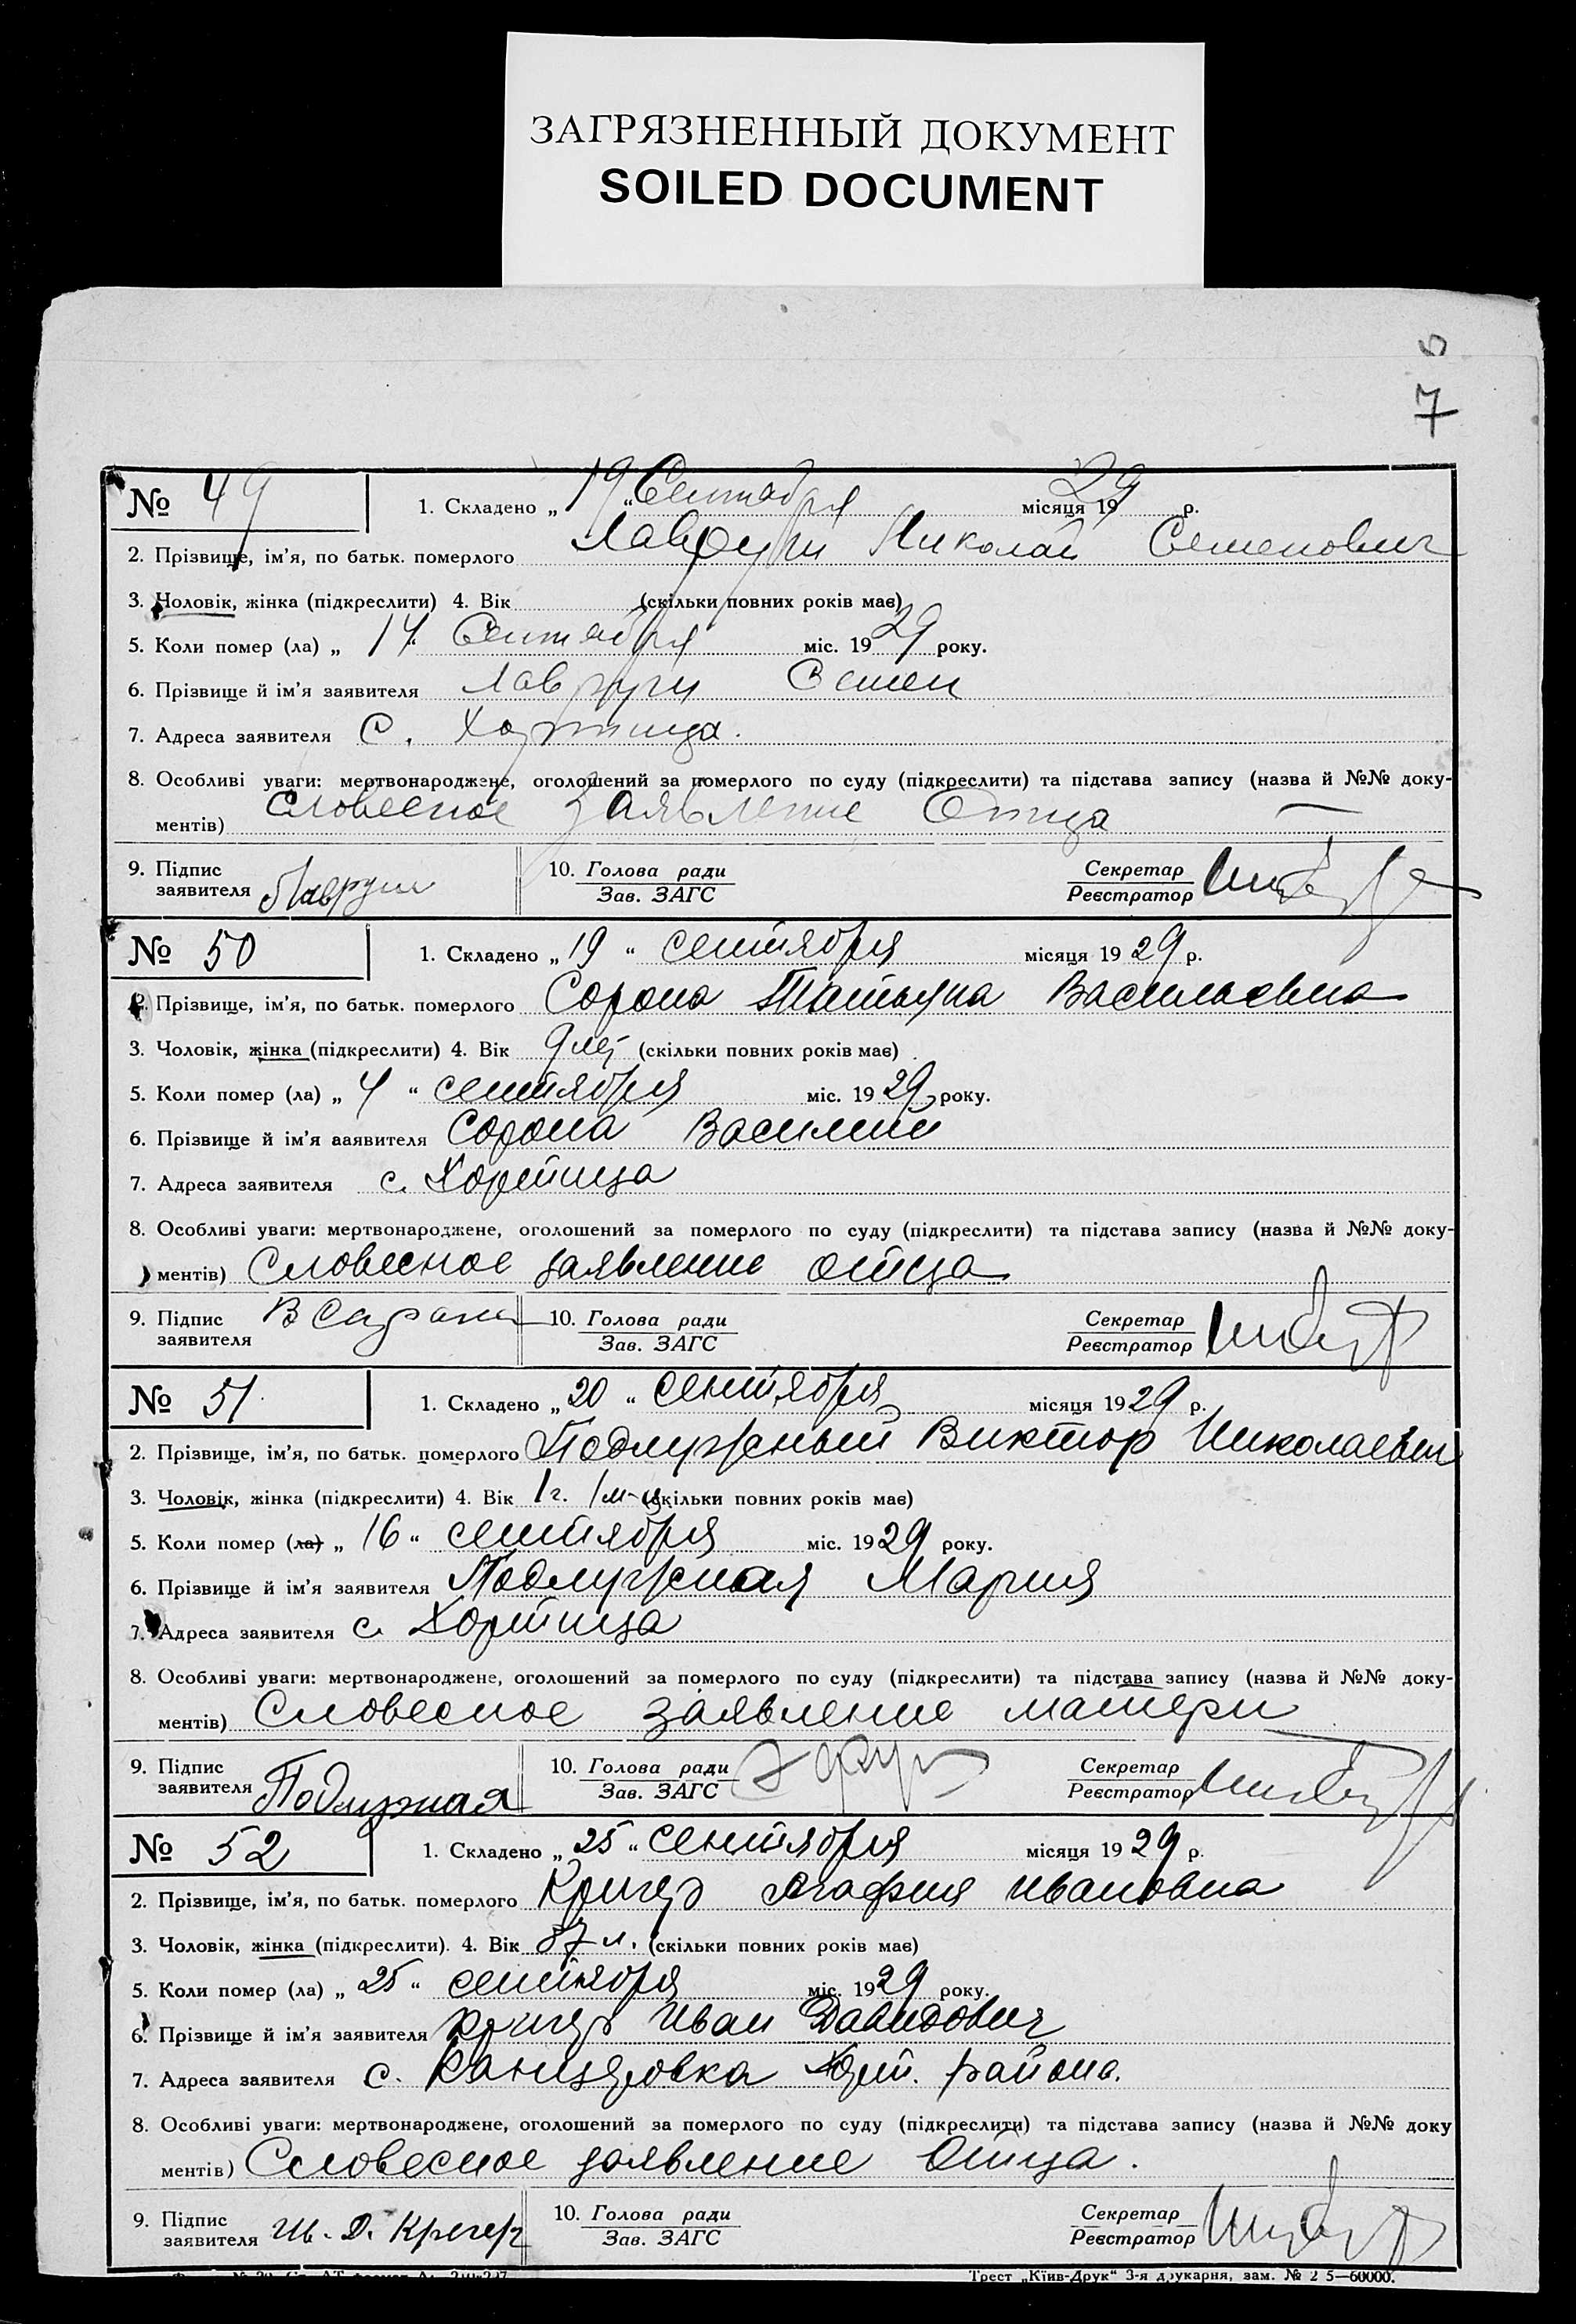 ЗАГРЯЗНЕННЫЙ ДОКУМЕНТ
SOILED DOCUMENT
7
№ 49
1. Складено „ 19 “ Сентября місяця 1929 р.
2. Прізвище, ім’я, по батьк. померлого Николай Семенович
3. Чоловік, жінка (підкреслити) 4. Вік (скільки повних років має)
5. Коли помер (ла) „ 14 “ Сентября міс. 1929 року.
6. Прізвище й ім’я заявителя Семен
7. Адреса заявителя С. Хортица.
8. Особливі уваги: мертвонароджене, оголошений за померлого по суду (підкреслити) та підстава запису (назва й №№ доку-
ментів) Словесное заявление Отца
9. Підпис
заявителя
10. Голова ради
Зав. ЗАГС
Секретар
Реєстратор
№ 50
1. Складено „ 19 “ сентября місяця 1929 р.
2. Прізвище, ім’я, по батьк. померлого Сорока Татьяна Васильевна
3. Чоловік, жінка (підкреслити) 4. Вік (скільки повних років має)
5. Коли помер (ла) „ 4 “ сентября міс. 1929 року.
6. Прізвище й ім’я ааявителя Сорока Василий
7. Адреса заявителя с. Хортица
8. Особливі уваги: мертвонароджене, оголошений за померлого по суду (підкреслити) та підстава запису (назва й №№ доку-
ментів) Словесное заявление отца
9. Підпис
заявителя
10. Голова ради
Зав. ЗАГС
Секретар
Реєстратор
№ 51
1. Складено „ 20 “ сентября місяця 1929 р.
2. Прізвище, ім’я, по батьк. померлого Подлужный Виктор Николаевич
3. Чоловік, жінка (підкреслити) 4. Вік 1 г. 1 м-ц (скільки повних років має)
5. Коли помер (ла) „ 16 “ сентября міс. 1929 року.
6. Прізвище й ім’я заявителя Подлужная Мария
7. Адреса заявителя с. Хортица
8. Особливі уваги: мертвонароджене, оголошений за померлого по суду (підкреслити) та підстава запису (назва й №№ доку-
ментів) Словесное заявление матери
9. Підпис
заявителя Подлужная
10. Голова ради
Зав. ЗАГС
Секретар
Реєстратор
№ 52
1. Складено „ 25 “ сентября місяця 1929 р.
2. Прізвище, ім’я, по батьк. померлого Кригер Агафия Ивановна
3. Чоловік, жінка (підкреслити). 4. Вік (скільки повних років має)
5. Коли помер (ла) „ 25 “ сентября міс. 1929 року.
6. Прізвище й ім’я заявителя Кригер Иван Давидович
7. Адреса заявителя с. Канцеровка Хорт. района.
8. Особливі уваги: мертвонароджене, оголошений за померлого по суду (підкреслити) та підстава запису (назва й №№ доку
ментів) Словесное заявление Отца.
9. Підпис
заявителя Ив. Д. Кригер
10. Голова ради
Зав. ЗАГС
Секретар
Реєстратор
Трест „Київ-Друк“ 3-я друкарня, зам. № 2 5—60000.